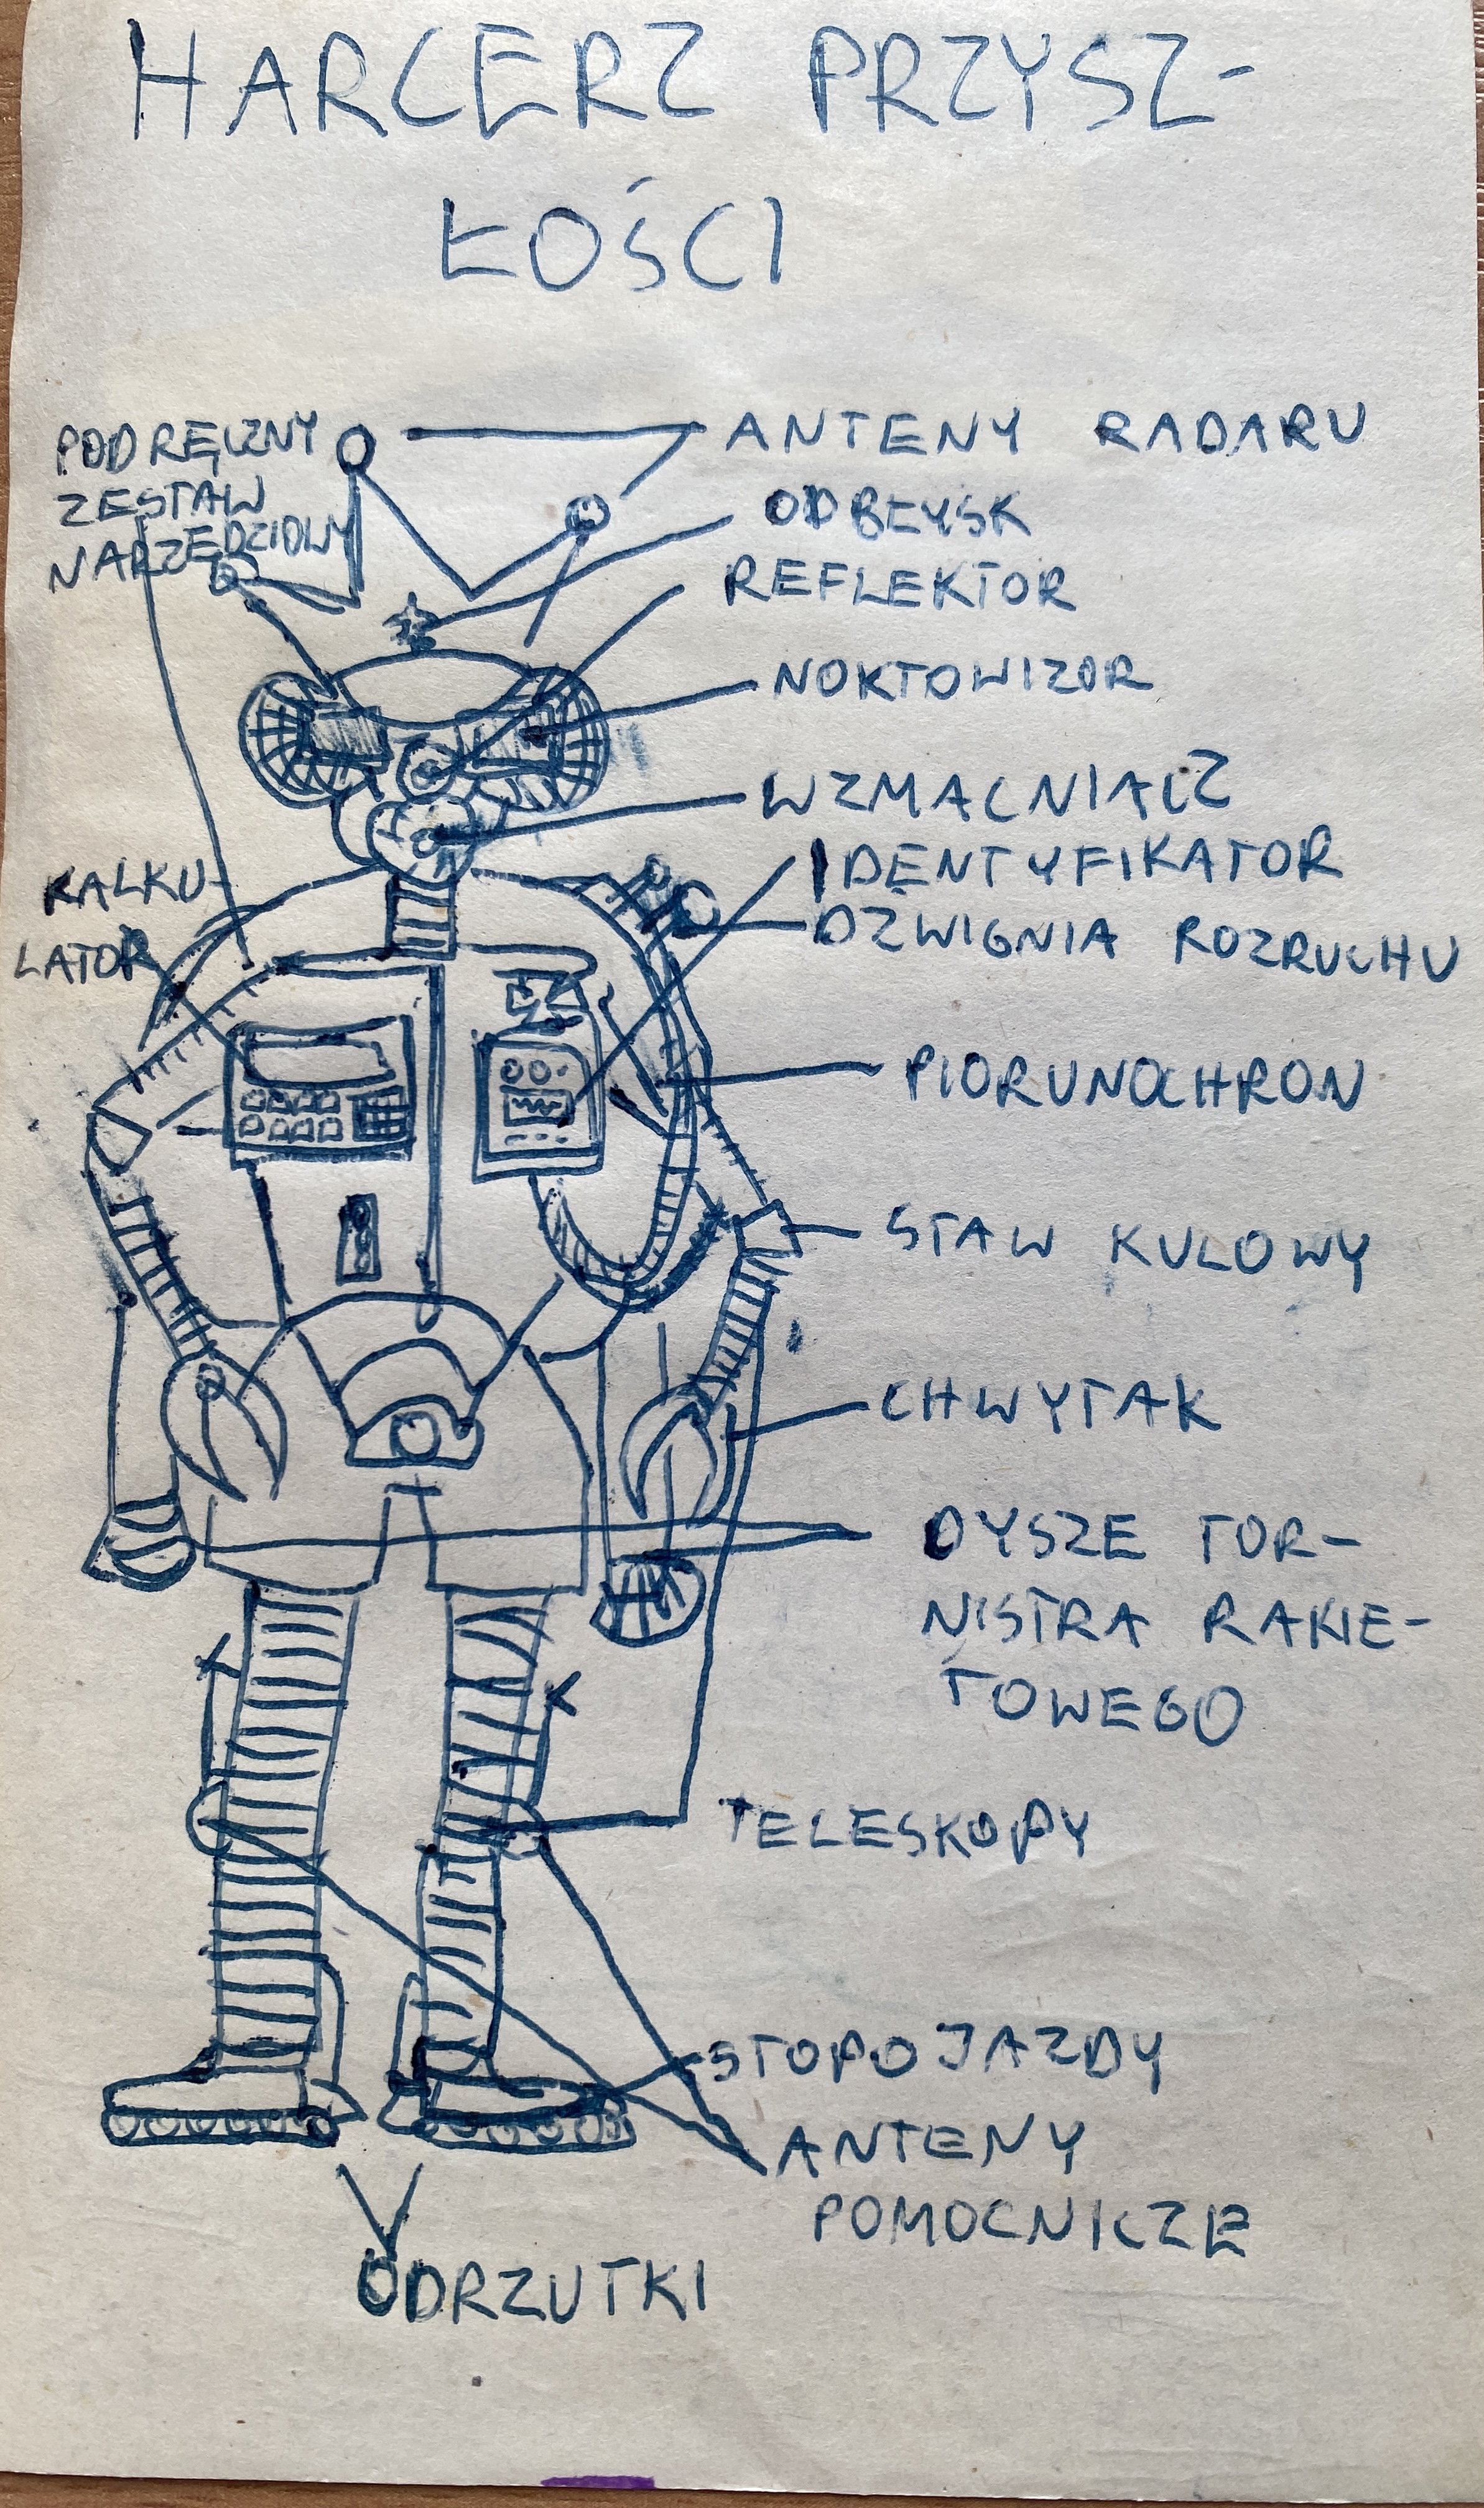 HARCERZ PRZYSZ-
ŁOŚCI
PODRĘCZNY
ZESTAW
NARZĘDZIOWY
ANTENY RADARU
ODBŁYSK
REFLEKTOR
NOKTOWIZOR
WZMACNIACZ
IDENTYFIKATOR
DŹWIGNIA ROZRUCHU
KALKU-
LATOR
PIORUNOCHRON
STAW KULOWY
CHWYTAK
DYSZE TOR-
NISTRA RAKIE-
TOWEGO
TELESKOPY
STOPOJAZDY
ANTENY
POMOCNICZE
ODRZUTKI